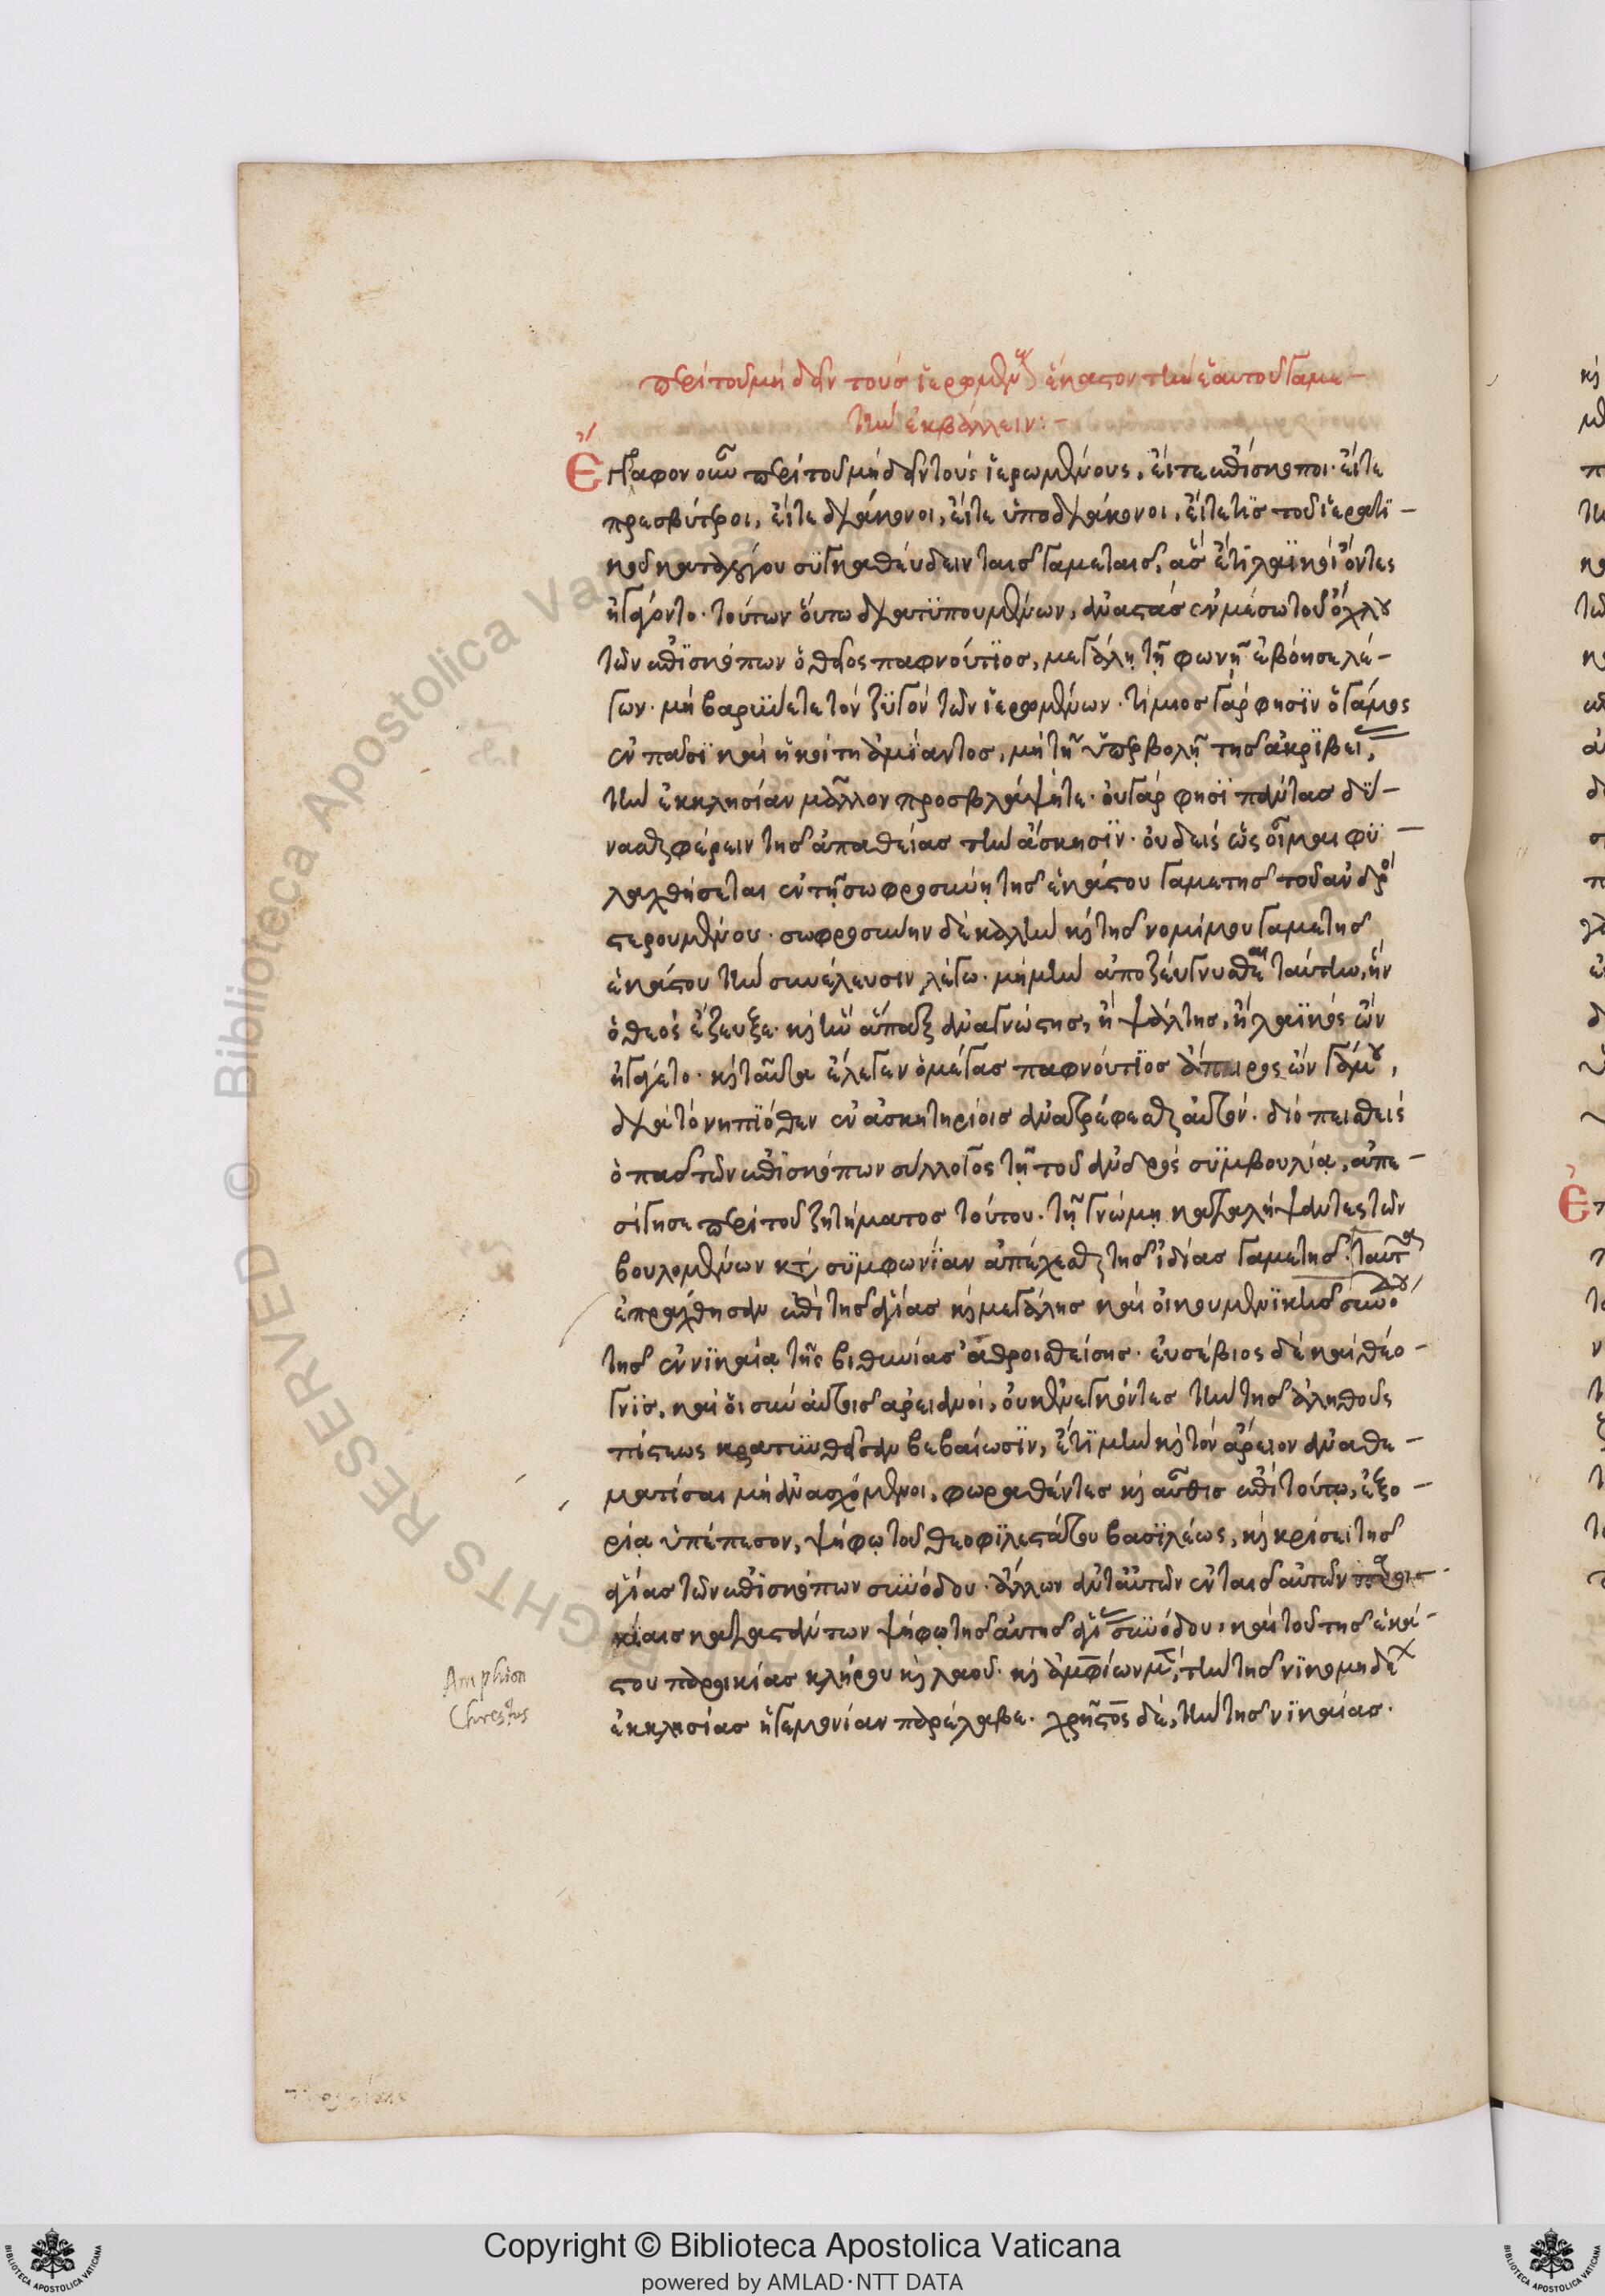 περὶ τοῦ μὴ δεῖν τοὺς ἱερωμένους ἕκαστον τὴν ἑαυτοῦ γαμε-
τὴν ἐκβάλλειν:-
Ἔγραφον οὖν περὶ τοῦ μὴ δεῖν τοὺς ἱερωμένους, εἴτε ἐπίσκοποι· εἴτε
πρεσβύτεροι, εἴτε διάκονοι, εἴτε ὑποδιάκονοι, εἴτε τὶς τοῦ ἱερατι-
κοῦ καταλόγου συγκαθεύδειν ταῖς γαμεταῖς, ἃς ἔτι λαϊκοὶ ὄντες
ἠγάγοντο· τούτων οὕτω διατυπουμένων, ἀναστὰς ἐν μέσω τοῦ ὄχλου
τῶν ἐπισκόπων ὁ θεῖος παφνούτιος, μεγάλῃ τῇ φωνῇ ἐβόησε λέ-
γων· μὴ βαρύνετε τὸν ζυγὸν τῶν ἱερωμένων· τίμιος γάρ φησιν ὁ γάμος
ἐν πᾶσι καὶ ἡ κοίτη ἀμίαντος, μὴ τῇ ὑπερβολῇ τῆς ἀκριβείας,
τὴν ἐκκλησίαν μᾶλλον προσβλάψητε· οὐ γάρ φησι πάντας δύ-
νασθαι φέρειν τῆς ἀπαθείας τὴν ἄσκησιν· οὐδεὶς ὡς οἶμαι φυ-
λαχθήσεται ἐν τῇ σωφροσύνῃ τῆς ἑκάστου γαμετῆς τοῦ ἀνδρὸς
στερουμένου· σωφροσύνην δὲ καλὴν κὶ τῆς νομίμου γαμετῆς
ἑκάστου τὴν συνέλευσιν λέγω· μὴ μὴν ἀποζεύγνυσθαι ταύτην, ἣν
ὁ θεὸς ἔζευξε· κὶ ἣν ἅπαξ ἀναγνώστης, ἢ ψάλτης, ἢ λαϊκὸς ὢν
ἠγάγετο· κὶ ταῦτα ἔλεγεν ὁ μέγας παφνούτιος ἄπειρος ὢν γάμου,
διὰ τὸ νηπιόθεν ἐν ἀσκητηρίοις ἀνατρέφεσθαι αὐτόν· διὸ πεισθεὶς
ὁ πᾶς τῶν ἐπισκόπων σύλλογος τῇ τοῦ ἀνδρὸς συμβουλίᾳ, ἀπε-
σίγησε περὶ τοῦ ζητήματος τούτου· τῇ γνώμῃ καταλείψαντες τῶν
βουλομένων κατὰ συμφωνίαν ἀπέχεσθαι τῆς ἰδίας γαμετῆς· ταῦτα
ἐπράχθησαν ἐπὶ τῆς ἁγίας κὶ μεγάλης καὶ οἰκουμενικῆς συνόδου
τῆς ἐν νικαίᾳ τῆς βιθυνίας ἀθροισθείσης· εὐσέβιος δὲ καὶ θέο-
γνις, καὶ οἱ σὺν αὐτοῖς ἀρειανοὶ, οὐκ ἐνεγκόντες τὴν τῆς ἀληθοῦς
πίστεως κρατυνθεῖσαν βεβαίωσιν, ἔτι μὴν κὶ τὸν ἄρειον ἀναθε-
ματίσαι μὴ ἀνασχόμενοι, φωραθέντες κὶ αὖθις ἐπὶ τούτῳ, ἐξο-
ρίᾳ ὑπέπεσον, ψήφῳ τοῦ θεοφιλεστάτου βασιλέως, κὶ κρίσει τῆς
ἁγίας τῶν ἐπισκόπων συνόδου· ἄλλων ἀντ' αὐτῶν ἐν ταῖς αὐτῶν παροι-
κίαις καταστάντων ψήφῳ τῆς αὐτῆς ἁγίας συνόδου, καὶ τοῦ τῆς ἑκά-
στου παροικίας κλήρου κὶ λαοῦ· κὶ ἀμφίων μὲν, τὴν τῆς νικομηδέων
ἐκκλησίας ἡγεμονίαν παρέλαβε· χρῆστος δὲ, τὴν τῆς νικαίας·
Amphion
Chrestus
Copyright © Biblioteca Apostolica Vaticana
powered by AMLAD·NTT DATA
RESERVED © Biblioteca Apostolica Vaticana